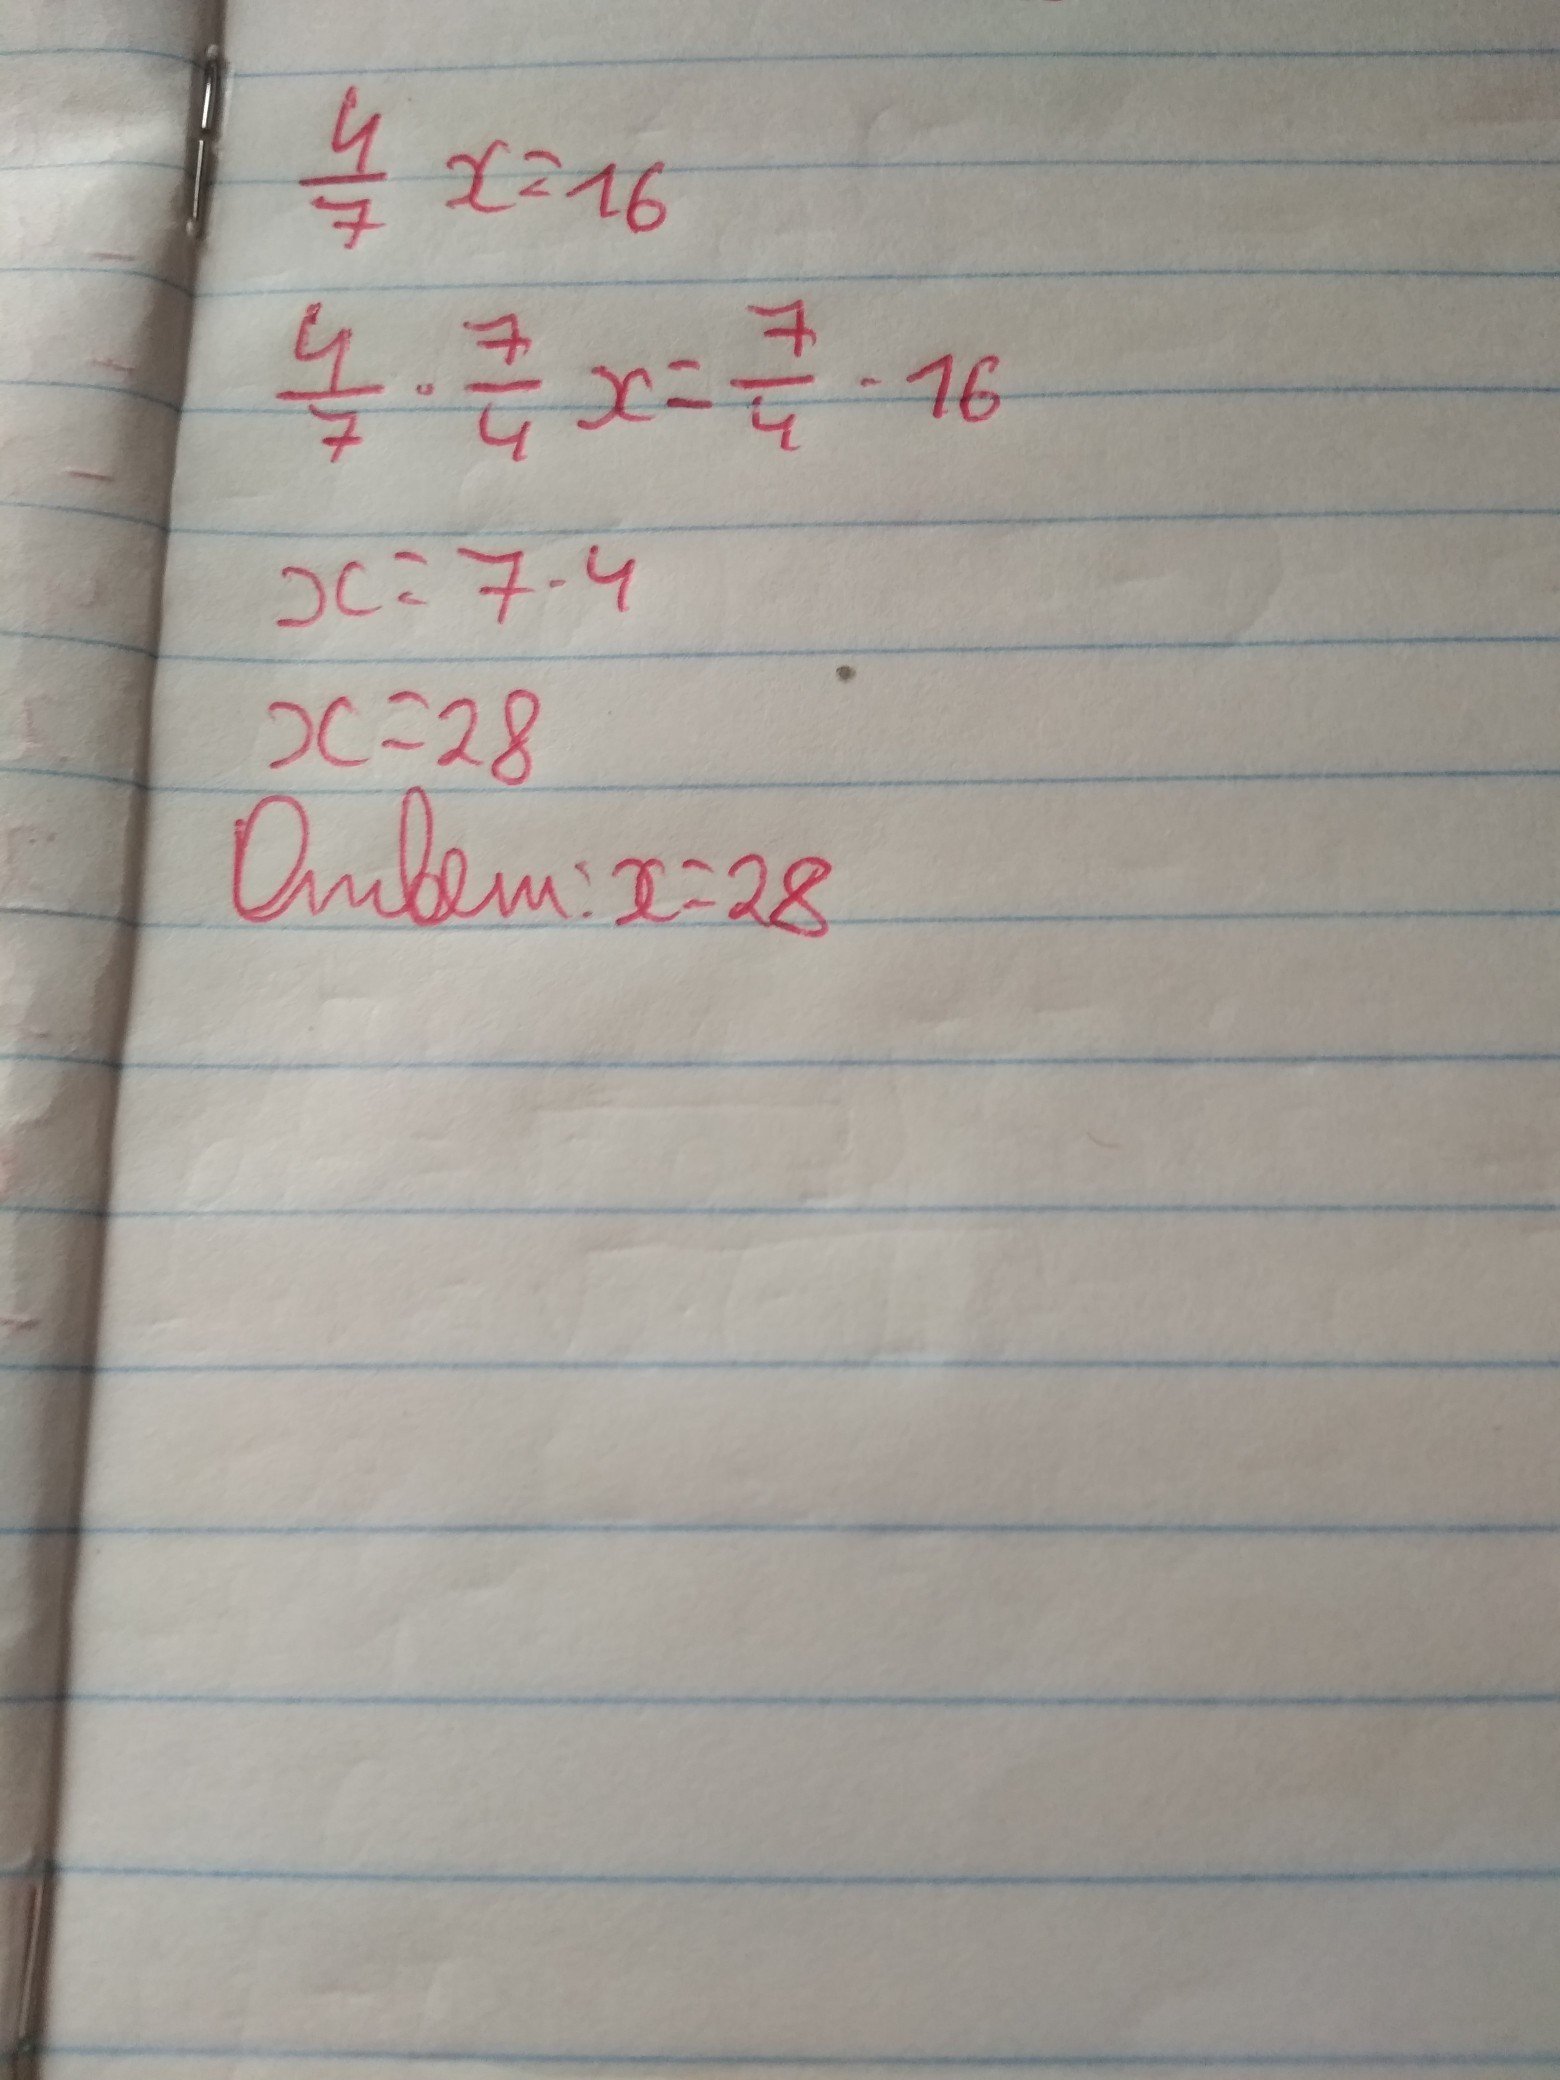 4/7 x=16
4/7 · 7/4 x = 7/4 · 16
x=7·4
x=28
Ответ: x=28